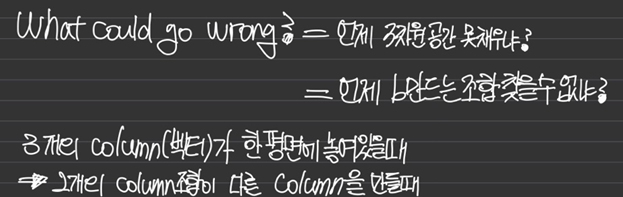 What could go wrong? = 언제 3차원 공간 못채우냐?
= 언제 b만드는 조합 찾을수 없냐?
3개의 column(벡터)가 한 평면에 놓여있을때
→ 2개의 column조합이 다른 column을 만들때